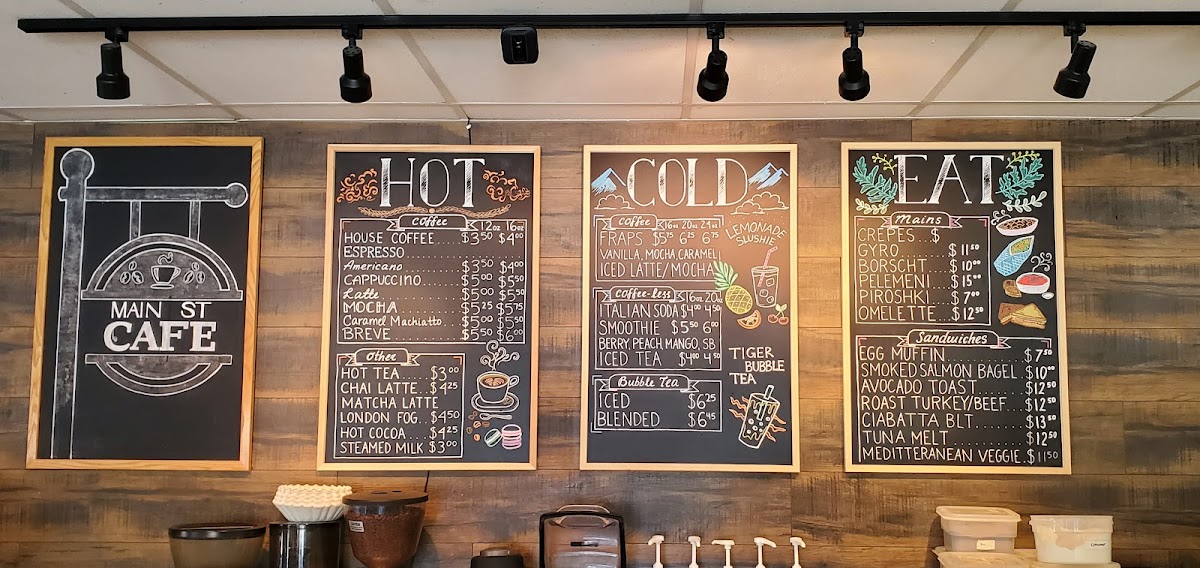 MAIN ST
CAFE
HOT
Coffee 12oz 16oz
HOUSE COFFEE.....$3.50 $4.00
ESPRESSO
Americano $3.50 $4.00
CAPPUCCINO $5.00 $5.50
Latte $5.00 $5.50
MOCHA $5.25 $5.75
Caramel Machiatto $5.00 $5.50
BREVE $5.50 $6.00
Other
HOT TEA.....$3.00
CHAI LATTE..$4.25
MATCHA LATTE
LONDON FOG..$4.50
HOT COCOA...$4.25
STEAMED MILK $3.00
COLD
Coffee 16oz 20oz 24oz
FRAPS $5.75 6.25 6.75
VANILLA, MOCHA CARAMEL
ICED LATTE/MOCHA
LEMONADE
SLUSHIE
Coffee-less 16oz 20oz
ITALIAN SODA $4.00 4.50
SMOOTHIE $5.50 6.00
BERRY, PEACH, MANGO, SB
ICED TEA $4.00 4.50
TIGER
BUBBLE
TEA
Bubble Tea
ICED $6.25
BLENDED $6.45
EAT
Mains
CREPES..$
GYRO......$11.50
BORSCHT...$10.00
PELEMENI..$15.00
PIROSHKI..$7.00
OMELETTE..$12.50
Sandwiches
EGG MUFFIN............$7.50
SMOKED SALMON BAGEL $10.00
AVOCADO TOAST........$12.50
ROAST TURKEY/BEEF...$12.50
CIABATTA BLT..........$13.50
TUNA MELT............$12.50
MEDITTERANEAN VEGGIE.$11.50